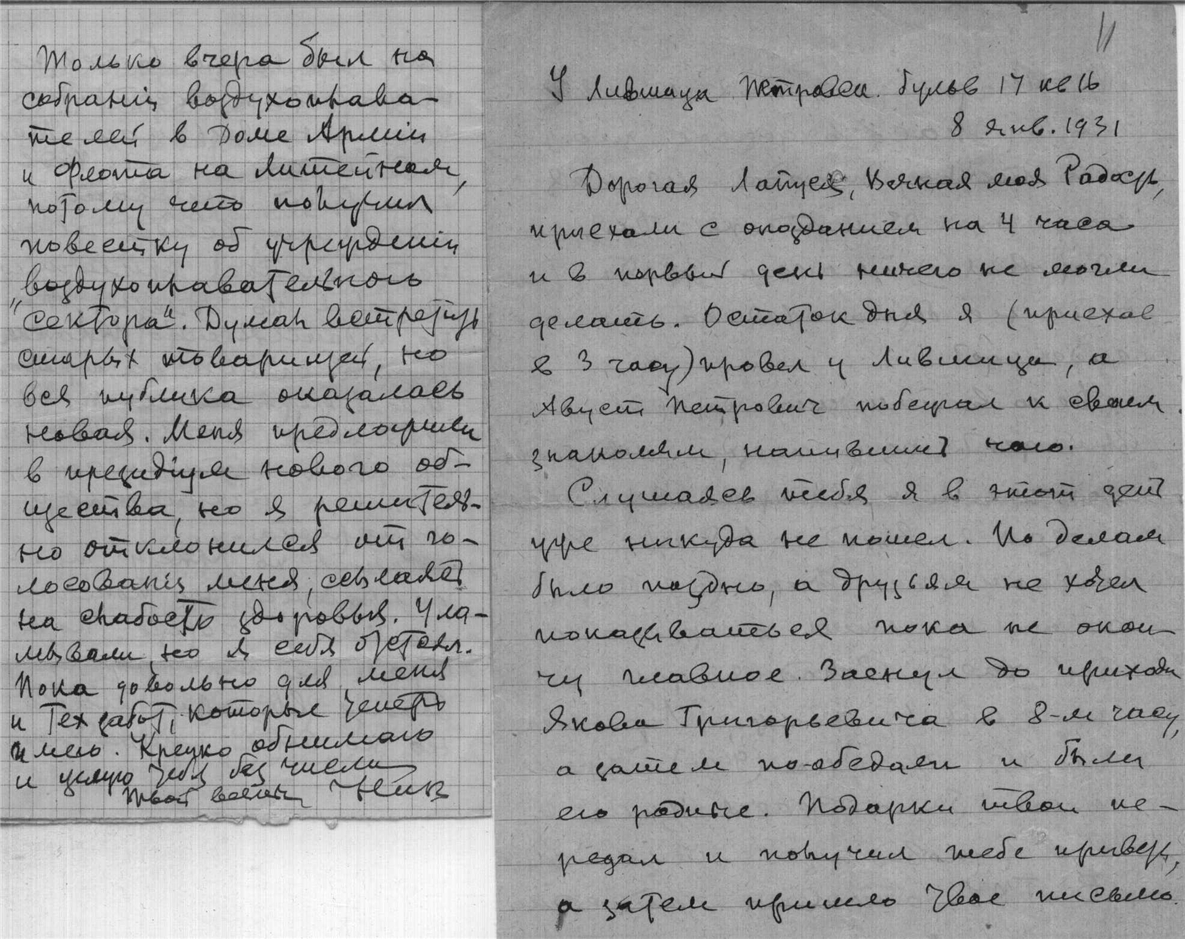 Только вчера был на
собраніи воздухоплава-
телей в Доме Арміи
и Флота на Литейном,
потому что получил
повестку об учрежденіи
воздухоплавательного
"сектора". Думал встретить
старых товарищей, но
вся публика оказалась
новая. Меня предложили
в президіум нового об-
щества, но я решитель-
но отклонился от го-
лосованія меня, ссылаясь
на слабость здоровья. Ула-
мывали, но я себя отстоял.
Пока довольно для меня
и тех забот, которые теперь
имею. Крепко обнимаю
и целую тебя без числа
Твой весь
11
У Лившица Петровск. бульв 17 кв 16
8 янв. 1931
Дорогая Лапуся, моя Радость,
приехали с опозданием на 4 часа
и в первый день ничего не могли
делать. Остаток дня я (приехав
в 3 часу) провел у Лившица, а
Август Петрович побежал к своим
знакомым, напившись чаю.
Слушаясь тебя я в этот день
уже никуда не пошел. По делам
было поздно, а друзьям не хотел
показываться пока не окон-
чу главное. Заснул до прихода
Якова Григорьевича в 8-м часу,
а затем пообедали и были
его родные. Подарки твои пе-
редал и получил тебе привет,
а затем пришло твое письмо.